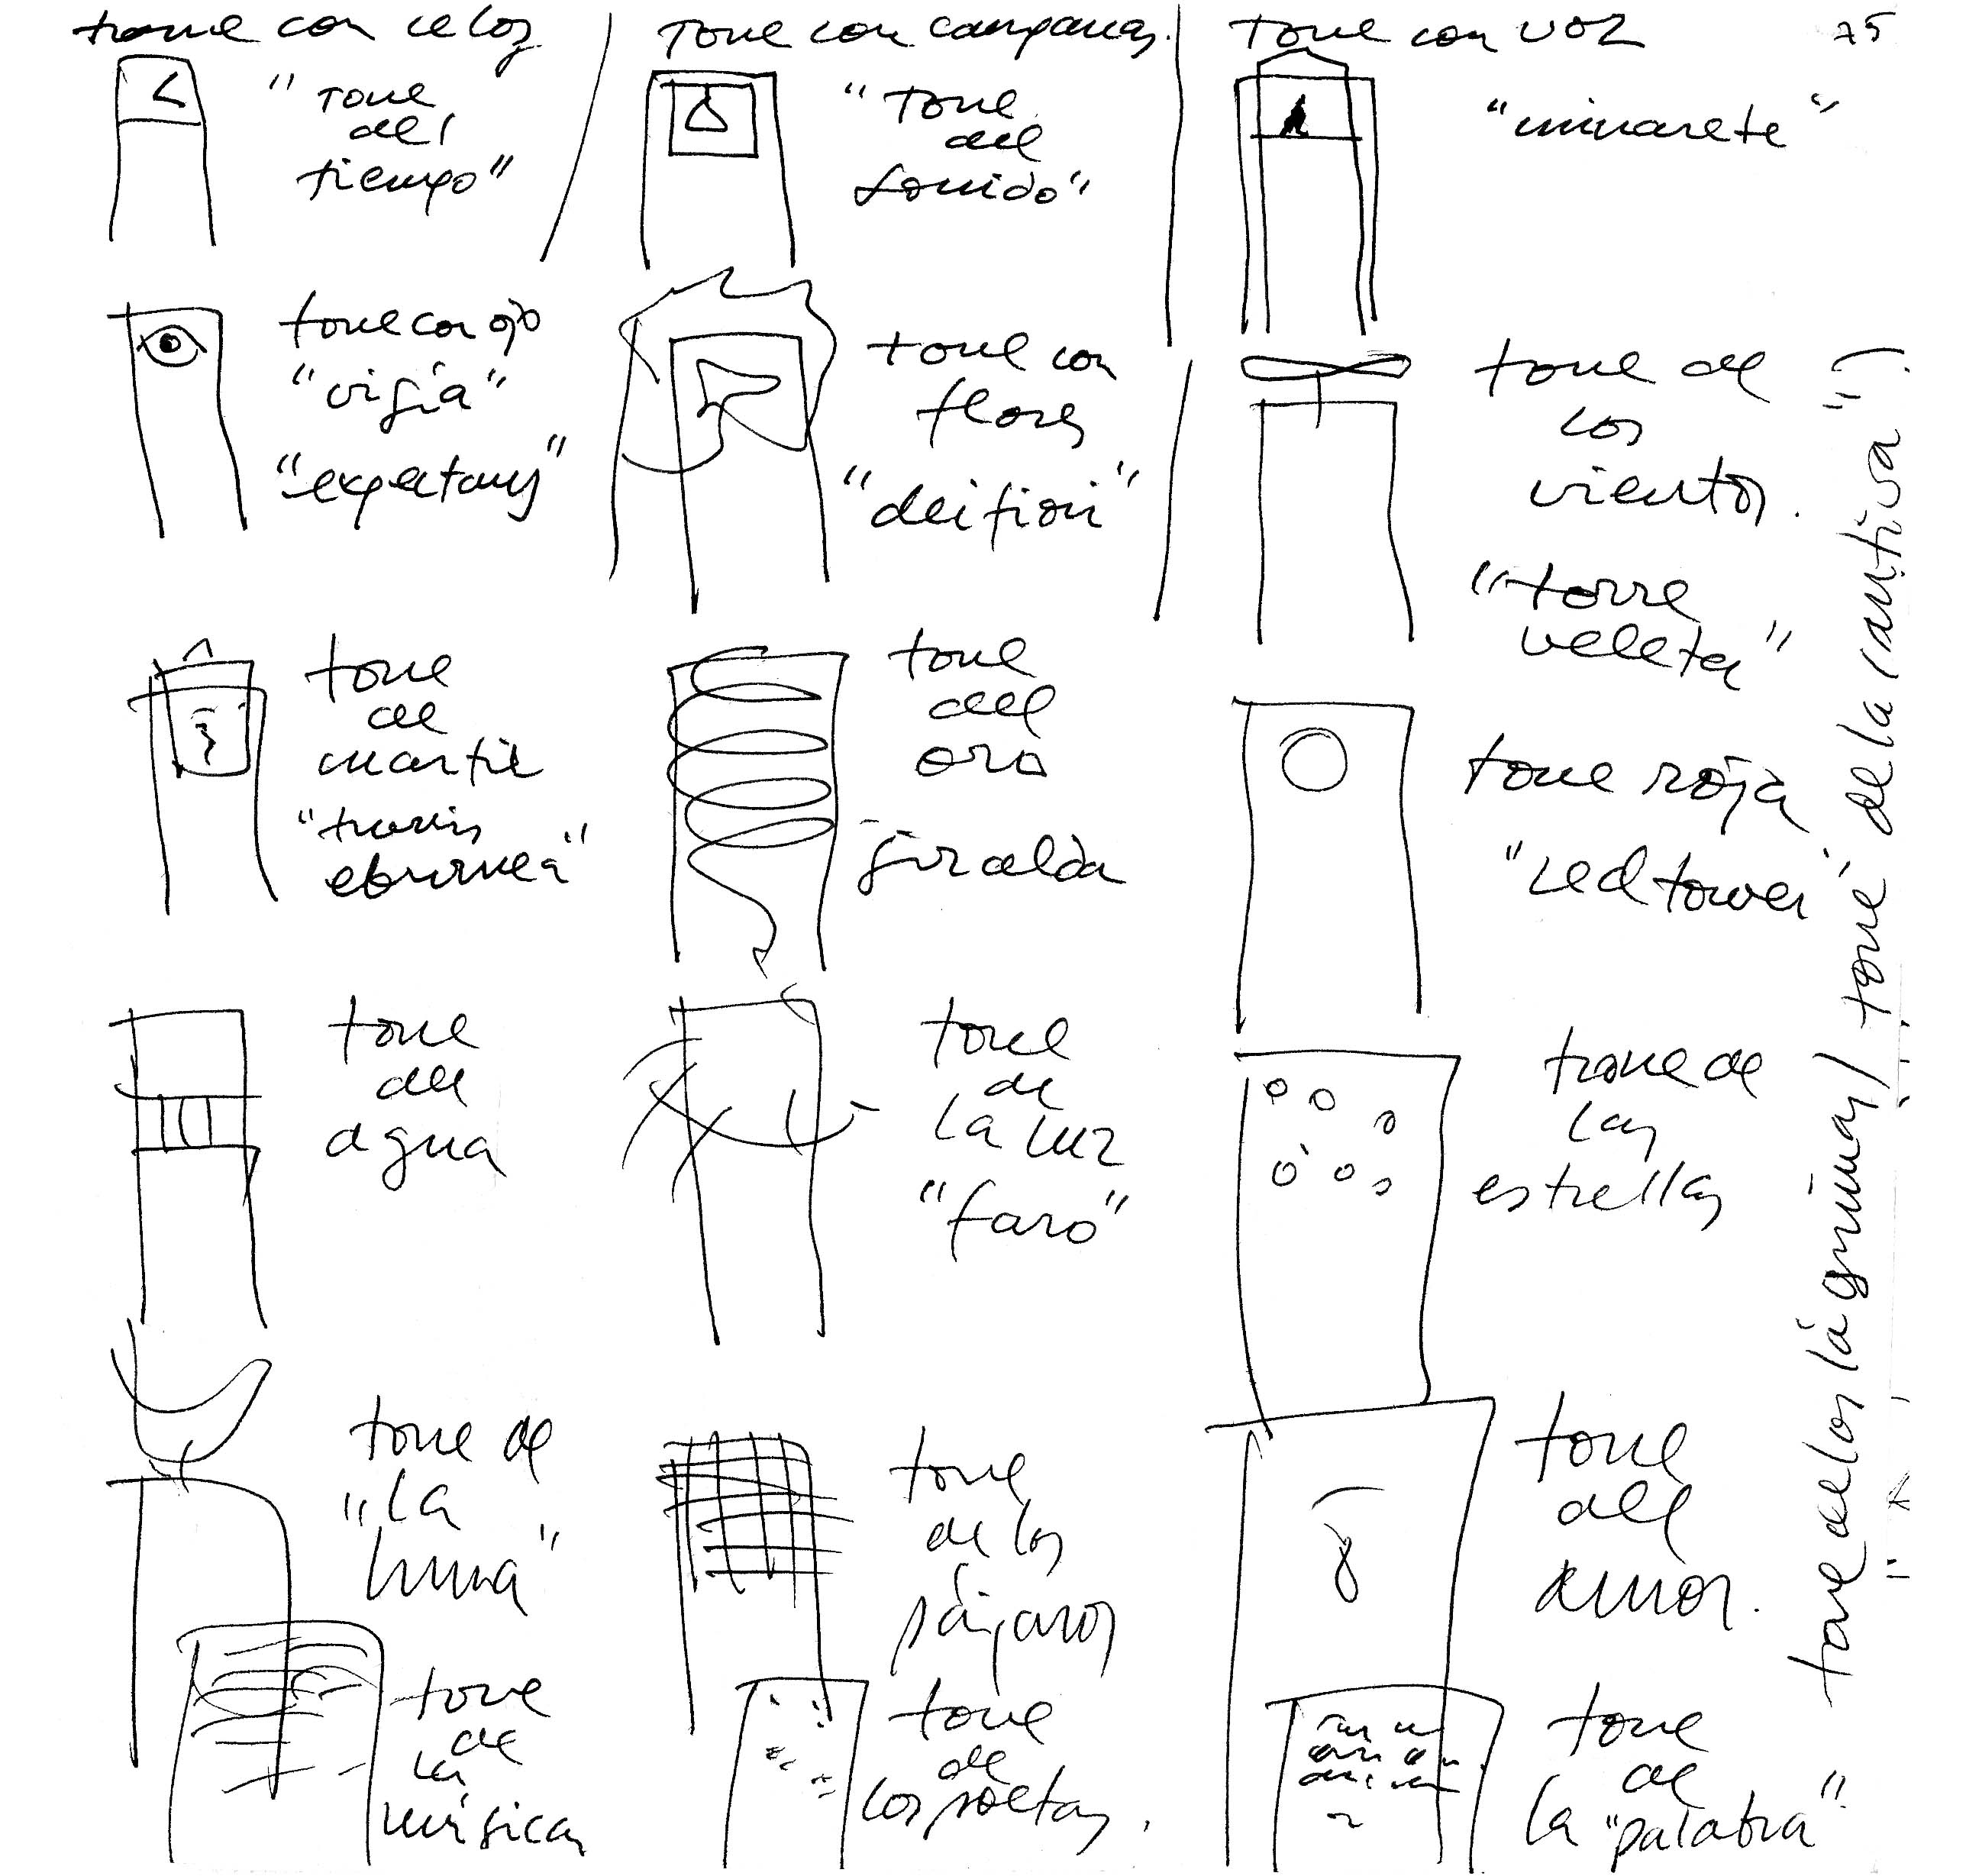 torre con reloj
"torre
del
tiempo"
torre con campanas.
"torre
del
sonido"
torre con voz
"minarete"
75
torre con ojo
"vigía"
"expectans"
torre con
flores
torre de
los
vientos.
"torre
veleta"
torre
de
marfil
"turris
eburnea"
torre
del
oro
giralda
torre roja
"red tower
torre
del
agua
torre
de
la luz
"faro"
torre de
las
estrellas
torre de
"la
luna"
torre
de los
pájaros
torre
del
amor.
torre
de
la
música
torre
de
los poetas.
torre
de
la "palabra".
torre de las lágrimas / torre de la cautiva")